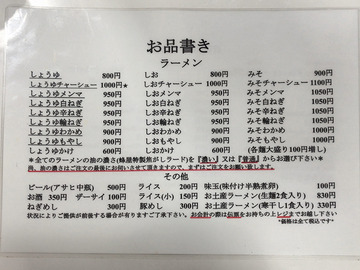 お品書き
ラーメン
しょうゆ 800円 しお 800円 みそ 900円
しょうゆチャーシュー 1000円★ しおチャーシュー 1000円 みそチャーシュー 1100円
しょうゆメンマ 950円 しおメンマ 950円 みそメンマ 1050円
しょうゆ白ねぎ 950円 しお白ねぎ 950円 みそ白ねぎ 1050円
しょうゆ辛ねぎ 950円 しお辛ねぎ 950円 みそ辛ねぎ 1050円
しょうゆ輪ねぎ 950円 しお輪ねぎ 950円 みそ輪ねぎ 1050円
しょうゆわかめ 900円 しおわかめ 900円 みそわかめ 1000円
しょうゆもやし 900円 しおもやし 900円 みそもやし 1000円
しょうゆかけ 600円 しおかけ 600円 (各麺大盛り100円増し)
※全てのラーメンの油の濃さ(蜂屋特製焦がしラード)を『濃い』又は『普通』からお選び下さい※
尚、前の濃さはご注文の最後にお伺いさせて頂きますので、まずはご注文をお願い致します。
その他
ビール(アサヒ中瓶) 500円 ライス 200円 味玉(味付け半熟煮卵) 100円
お酒 350円 ザーサイ 100円 ライス(小) 150円 お土産ラーメン(生麺2食入り) 830円
ねぎめし 300円 豚めし 300円 お土産ラーメン(寒干し1食入り) 330円
状況によりご提供が前後する場合が有りますご了承下さい。お会計の際は伝票をお持ちの上レジまでお越し下さい
*価格は全て税込です*